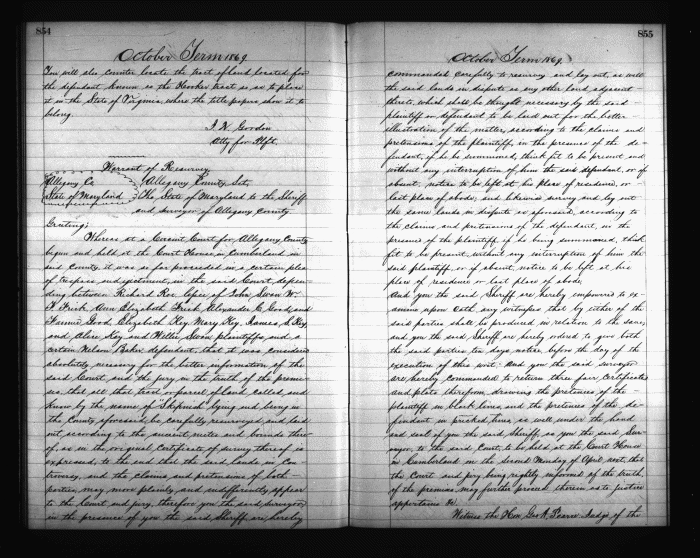 854
October Term 1869
You will also counter locate the tract of land located for
the defendant known as the Hooker tract so as to place
it in the State of Virginia, where the title papers show it to
belong.
J. N. Gordon
Atty for Plft.
Warrant of Resurvey
Allegany Co
State of Maryland
Allegany County Sct,
The State of Maryland to the Sheriff
and surveyor of Allegany County
Greeting;
Whereas at a Circuit Court for Allegany County
begun and held at the Court House, in Cumberland in
said County, it was so far proceeded in a certain plea
of trespass and ejectment, in the said Court, depen-
ding between Richard Roe lessee of John Swan W.
F. Frick, Ann Elizabeth Frick Alexander C. Good, and
Fannie Good, Elizabeth Key, Mary Key, James S. Key,
and Alice Key and Willie Swan plaintiffs, and a
certain Nelson Baker defendant, that it was considered
absolutely necessary for the better information of the
said Court, and the jury in the truth of the premi-
ses, that all that tract or parcel of land called, and
known by the name of "Skipnish" lying and being in
the County aforesaid, be carefully resurveyed, and laid
out according to the ancient metes and bounds there-
of, as in the original certificate of survey thereof is
expressed, to the end that the said lands in Con-
troversy, and the claims and pretensions of both
parties, may more plainly and indifferently appear
to the Court and jury, therefore you the said surveyor,
in the presence of you the said Sheriff, are hereby
855
October Term 1869.
commanded carefully to resurvey and lay out, as well
the said lands in dispute as any other land adjacent
thereto, which shall be thought necessary by the said
plaintiff or defendant to be laid out for the better
illustration of the matter, according to the claims and
pretensions of the plaintiff, in the presence of the de-
fendant, if he be summoned, think fit to be present and
without any interruption of him the said defendant, or if
absent, notice to be left at his place of residence, or
last place of abode; and likewise survey and lay out
the same lands in dispute as aforesaid, according to
the claims and pretensions of the defendant, in the
presence of the plaintiff, if he being summoned, think
fit to be present, without any interruption of him the
said plaintiff, or if absent, notice to be left at his
place of residence or last place of abode.
And you the said Sheriff are hereby empowered to ex-
amine upon Oath any witnesses that by either of the
said parties shall be produced in relation to the same,
and you the said Sheriff are hereby ordered to give both
the said parties ten days notice, before the day of the
execution of this writ. And you the said surveyor
are hereby commanded to return three fair Certificates
and plats therefrom, drawing the pretences of the
plaintiff in black lines, and the pretences of the de-
fendant in pricked lines, as well under the hand
and seal of you the said Sheriff, as you the said Sur-
veyor, to the said Court, to be held at the Court House
in Cumberland on the second Monday of April next, that
the Court and jury being rightly informed of the truth
of the premises, may further proceed therein as to justice
appertains &c.
Witness the Hon. Geo A. Pearre Judge of the